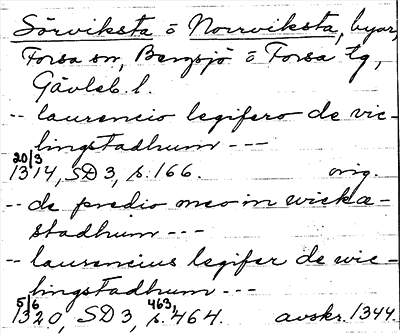 Sörviksta o Norrviksta, byar,
Forsa sn, Bergsjö o Forsa tg,
Gävleb. l.
-- laurencio legifero de vic-
hingstadhum ---
20/3
1314, SD 3, s. 166. orig.
-- de predio meo in wicka-
stadhum ---
-- laurencius legifer de wic-
hingstadhum ---
5/6
1320, SD 3, 463, s. 464. avskr. 1344.